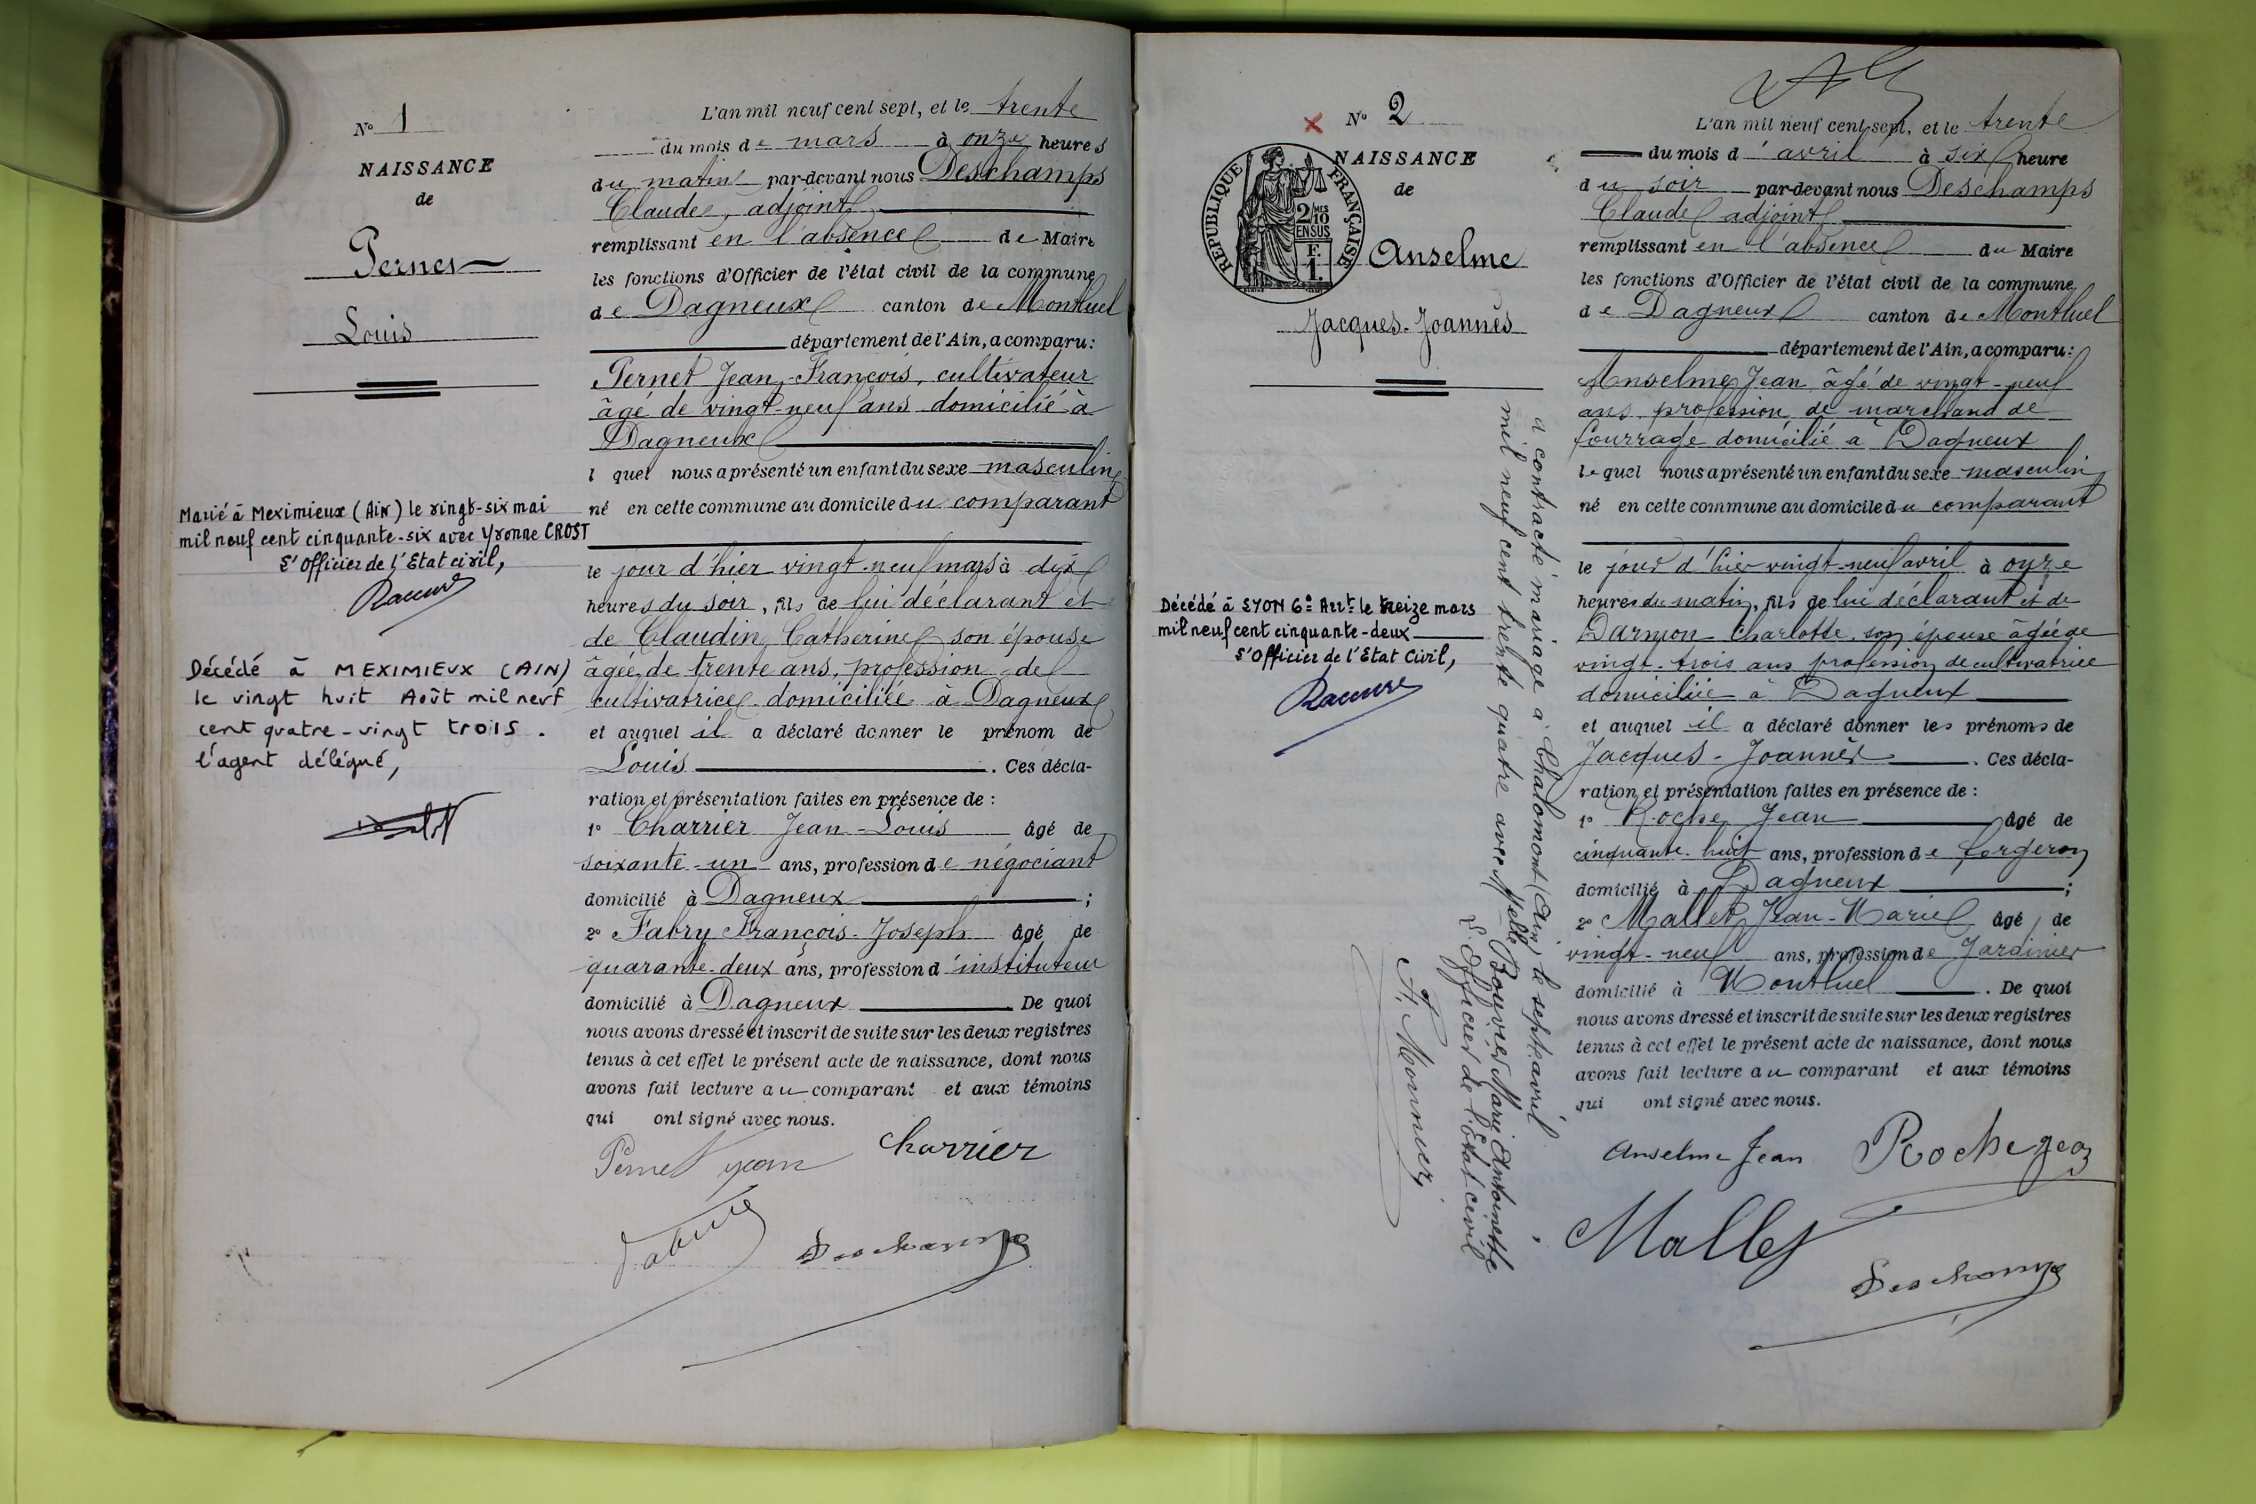 Nº 1
NAISSANCE
de
Pernet
Louis
Marié à Meximieux (Ain) le vingt-six mai
mil neuf cent cinquante-six avec Yvonne CROST
L'Officier de l'Etat civil,
Décédé à MEXIMIEUX (AIN)
le vingt huit Août mil neuf
cent quatre-vingt trois.
l'agent délégué,
L'an mil neuf cent sept, et le trente
du mois de mars à onze heures
du matin par-devant nous Deschamps
Claude, adjoint
remplissant en l'absence de Maire
les fonctions d'Officier de l'état civil de la commune
de Dagneux canton de Montluel
département de l'Ain, a comparu:
Pernet Jean-François, cultivateur
âgé de vingt-neuf ans domicilié à
Dagneux
l quel nous a présenté un enfant du sexe masculin
né en cette commune au domicile du comparant
le jour d'hier vingt-neuf mars à dix
heures du soir, fils de lui déclarant et
de Claudin Catherine son épouse
âgée de trente ans, profession de
cultivatrice domiciliée à Dagneux
et auquel il a déclaré donner le prénom de
Louis. Ces décla-
ration et présentation faites en présence de :
1º Charrier Jean-Louis âgé de
soixante-un ans, profession de négociant
domicilié à Dagneux ;
2º Fabry François-Joseph âgé de
quarante-deux ans, profession d'instituteur
domicilié à Dagneux. De quoi
nous avons dressé et inscrit de suite sur les deux registres
tenus à cet effet le présent acte de naissance, dont nous
avons fait lecture au comparant et aux témoins
qui ont signé avec nous.
Pernet jean Charrier
Deschamps
Nº 2
NAISSANCE
de
RÉPUBLIQUE FRANÇAISE
2/10 MES
EN SUS
F.
1.
Anselme
Jacques-Joannès
Décédé à LYON 6e Arrt le treize mars
mil neuf cent cinquante-deux
L'Officier de l'Etat Civil,
a contracté mariage à Chalamont (Ain) le sept avril
mil neuf cent trente quatre avec Melle Bouvier Marie Antoinette
L'Officier de l'Etat civil
A. Monnier
L'an mil neuf cent sept, et le trente
du mois d'avril à six heure
du soir par-devant nous Deschamps
Claude adjoint
remplissant en l'absence du Maire
les fonctions d'Officier de l'état civil de la commune
de Dagneux canton de Montluel
département de l'Ain, a comparu:
Anselme Jean âgé de vingt-neuf
ans profession de marchand de
fourrage domicilié à Dagneux
lequel nous a présenté un enfant du sexe masculin
né en cette commune au domicile du comparant
le jour d'hier vingt-neuf avril à onze
heures du matin, fils de lui déclarant et de
Darmon Charlotte son épouse âgée de
vingt-trois ans profession de cultivatrice
domiciliée à Dagneux
et auquel il a déclaré donner les prénoms de
Jacques-Joannès. Ces décla-
ration et présentation faites en présence de :
1º Roche Jean âgé de
cinquante-huit ans, profession de forgeron
domicilié à Dagneux ;
2º Mallet Jean-Marie âgé de
vingt-neuf ans, profession de Jardinier
domicilié à Montluel. De quoi
nous avons dressé et inscrit de suite sur les deux registres
tenus à cet effet le présent acte de naissance, dont nous
avons fait lecture au comparant et aux témoins
qui ont signé avec nous.
Anselme Jean Roche jean
Mallet
Deschamps